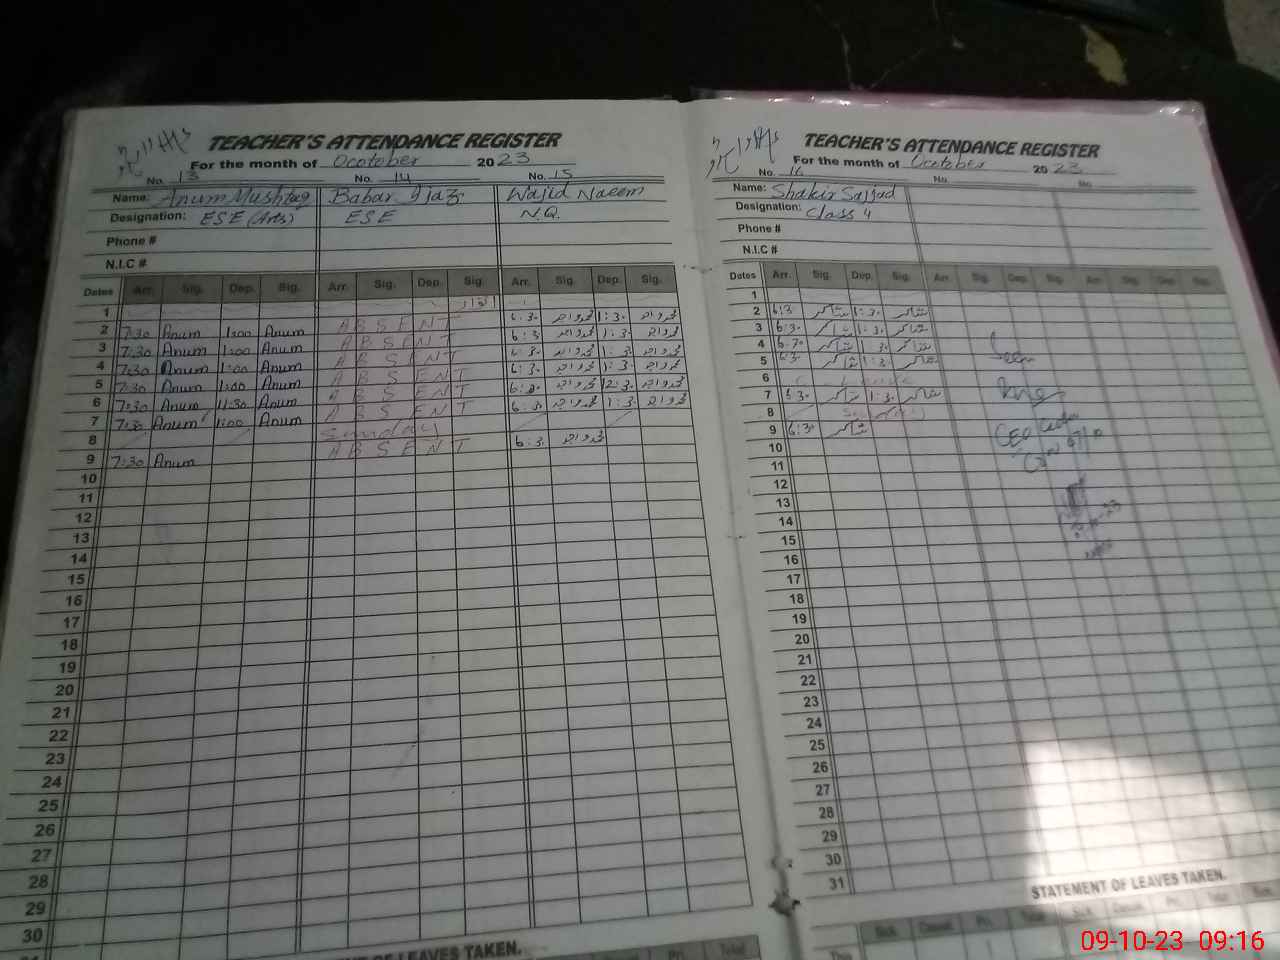 TEACHER'S ATTENDANCE REGISTER
For the month of Ocotober 2023
No. 13 No. 14 No. 15
Name: Anum Mushtaq Babar Ijaz Wajid Naeem
Designation: ESE (Arts) ESE N.Q.
Phone #
N.I.C #
Dates Arr. Sig. Dep. Sig. Arr. Sig. Dep. Sig. Arr. Sig. Dep. Sig.
1 اتوار
2 7:30 Anum 1:00 Anum ABSENT 6:30 1:30
3 7:30 Anum 1:00 Anum ABSENT 6:30 1:30
4 7:30 Anum 1:00 Anum ABSENT 6:30 1:30
5 7:30 Anum 1:00 Anum ABSENT 6:30 1:30
6 7:30 Anum 11:30 Anum ABSENT 12:30
7 7:30 Anum 1:00 Anum ABSENT 6:30 1:30
8 Sunday
9 7:30 Anum ABSENT 6:30
10
11
12
13
14
15
16
17
18
19
20
21
22
23
24
25
26
27
28
29
30
31
STATEMENT OF LEAVES TAKEN.
Pri. Total
TEACHER'S ATTENDANCE REGISTER
For the month of Ocotober 2023
No. 16 No. No.
Name: Shakir Sajjad
Designation: Class 4
Phone #
N.I.C #
Dates Arr. Sig. Dep. Sig. Arr. Sig. Dep. Sig. Arr. Sig. Dep. Sig.
1
2 6:30 شاکر 1:30 شاکر
3 6:30 شاکر 1:30 شاکر
4 6:30 شاکر 1:30 شاکر
5 6:30 شاکر 1:30 شاکر
6 C Leave
7 6:30 شاکر 1:30 شاکر
8 Sunday
9 6:30 شاکر
Seen
CEO
10
11
12
13
14
15
16
17
18
19
20
21
22
23
24
25
26
27
28
29
30
31
STATEMENT OF LEAVES TAKEN.
Sick Casual Pri. Total Sick Casual Pri. Total Sick
This
09-10-23 09:16